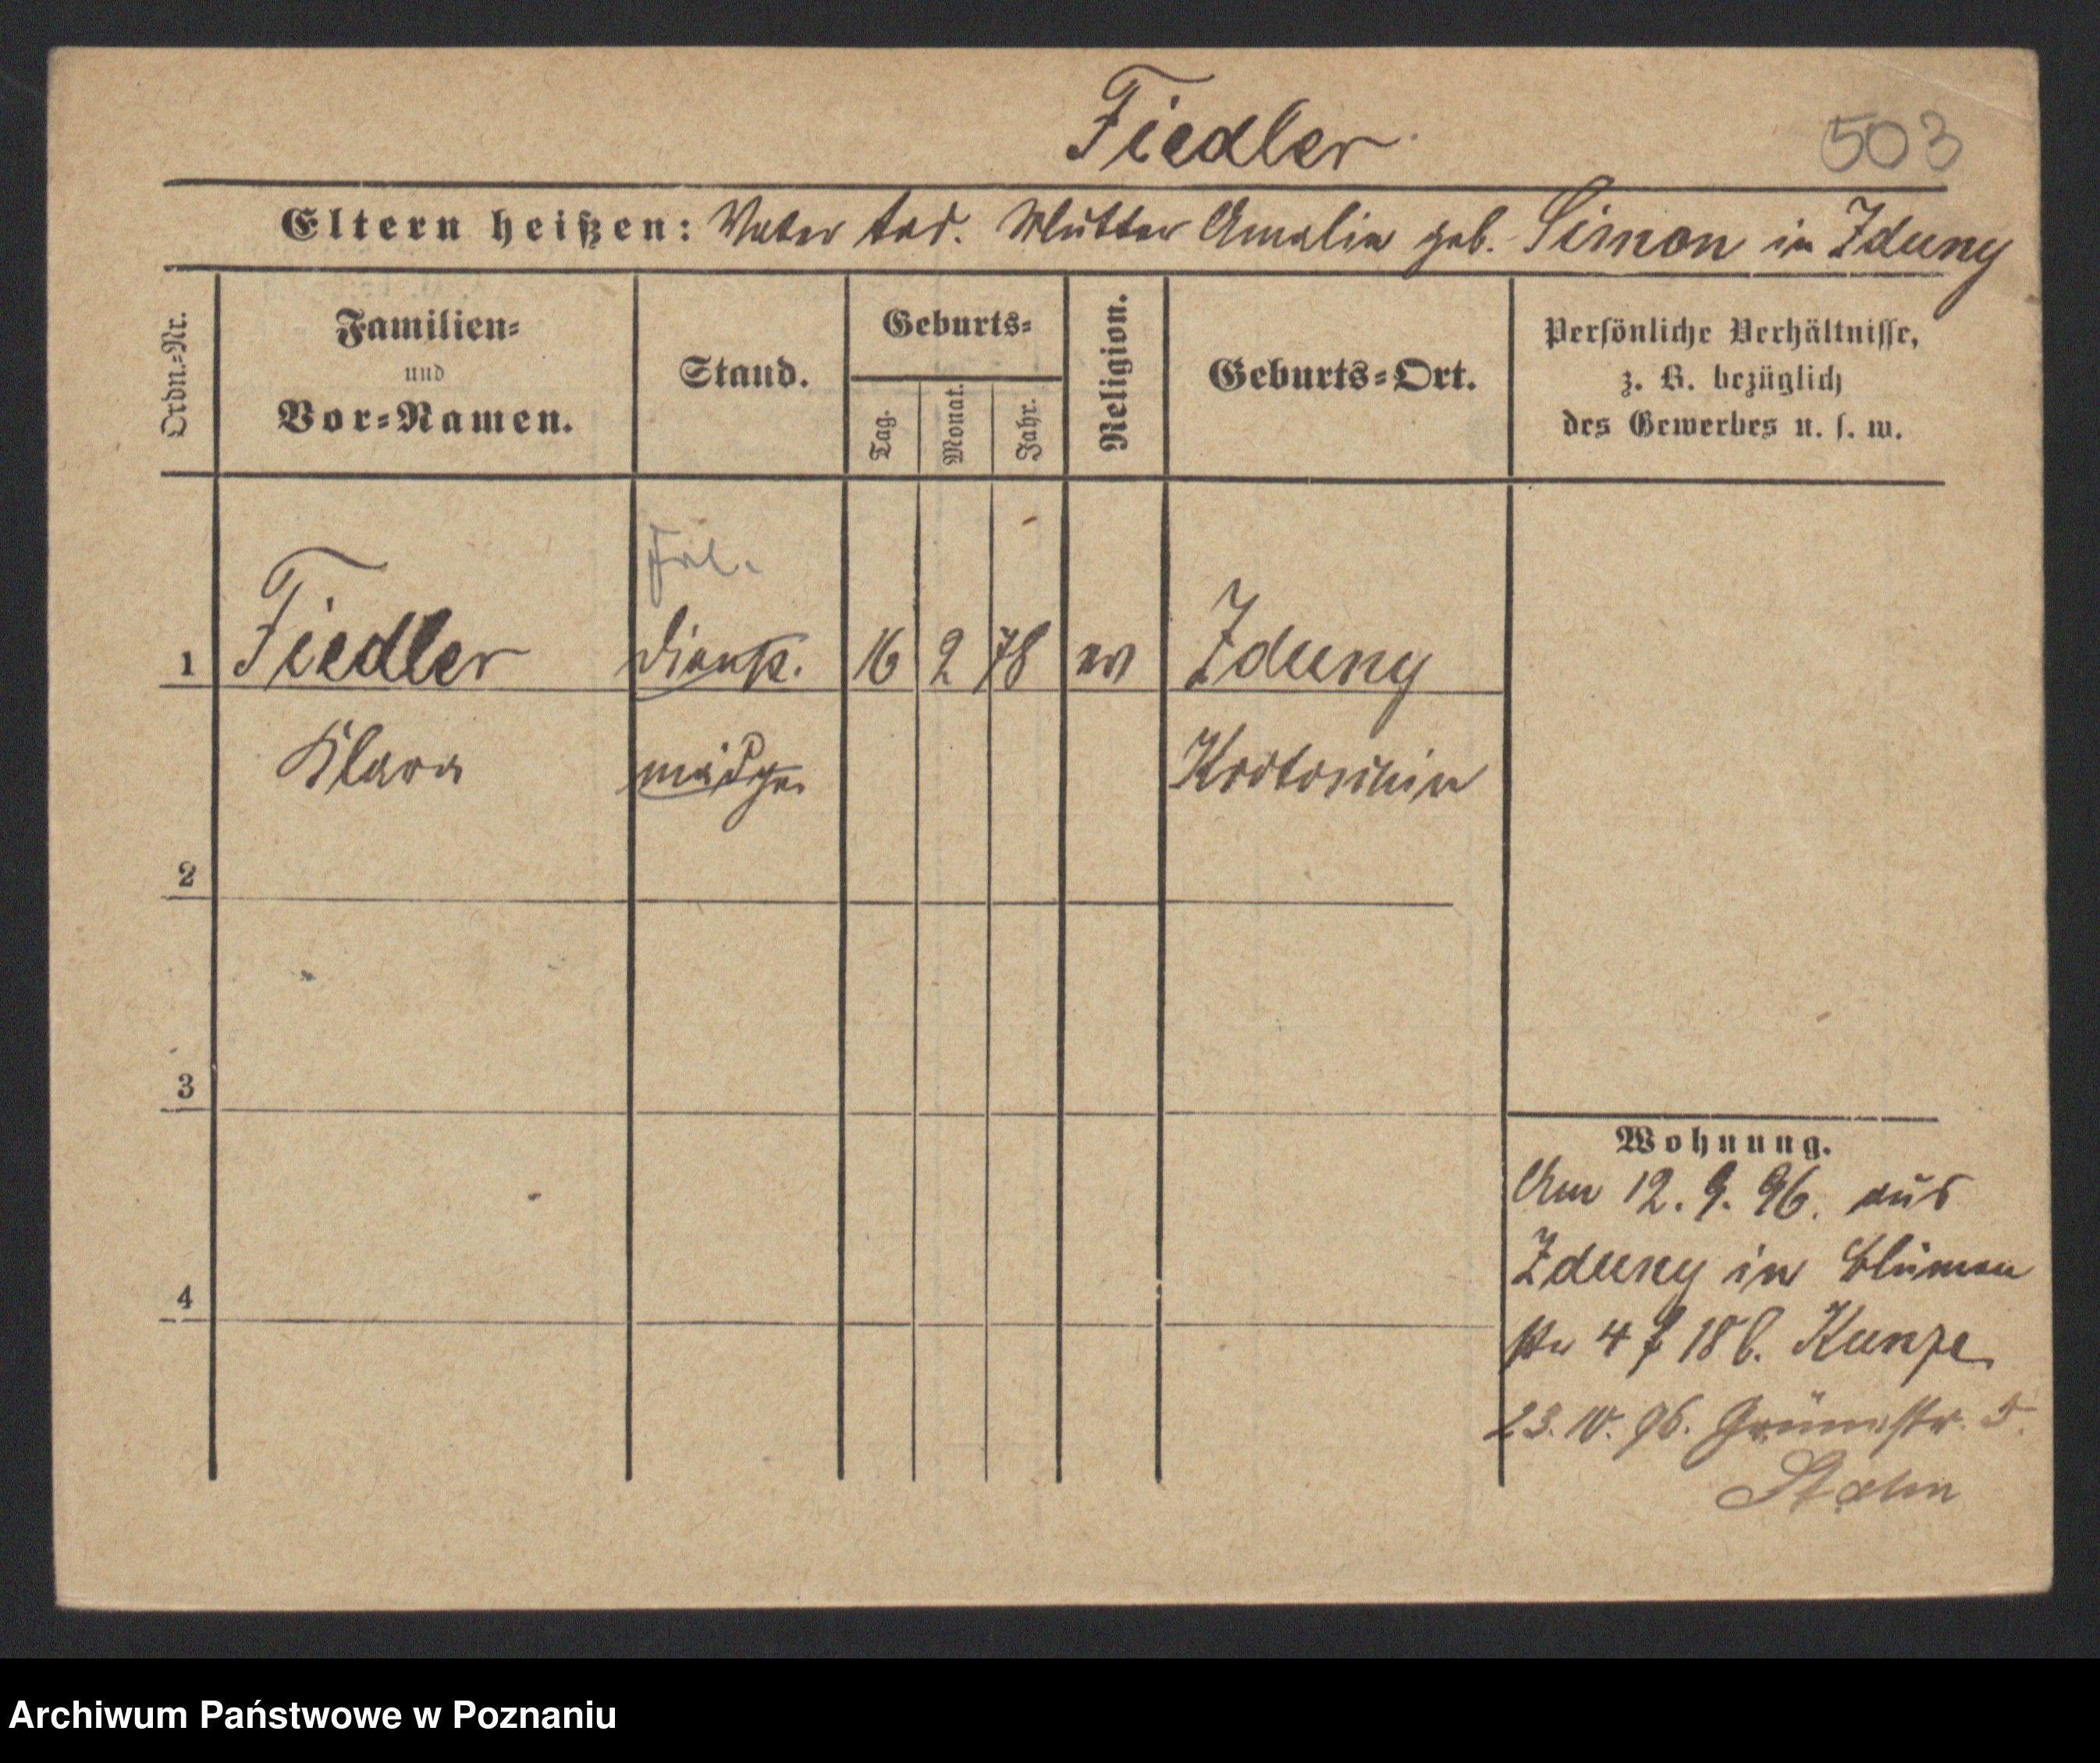 Fiedler
503
Eltern heißen: Vater tod. Mutter Amalie geb. Simon in Zduny
Ordn.=Nr.
Familien=
und
Vor=Namen.
Stand.
Geburts=
Tag.
Monat.
Jahr.
Religion.
Geburts=Ort.
Persönliche Verhältnisse,
z. B. bezüglich
des Gewerbes u. s. w.
Frl.
1 Fiedler Dienst. 16 2 78 ev Zduny
Klara mädch. Krotoschin
2
3
4
Wohnung.
Am 12. 9. 96. aus
Zduny in Blumen
str 4 18 b. Kunze
23. 10. 96. Grünestr. 5.
Archiwum Państwowe w Poznaniu